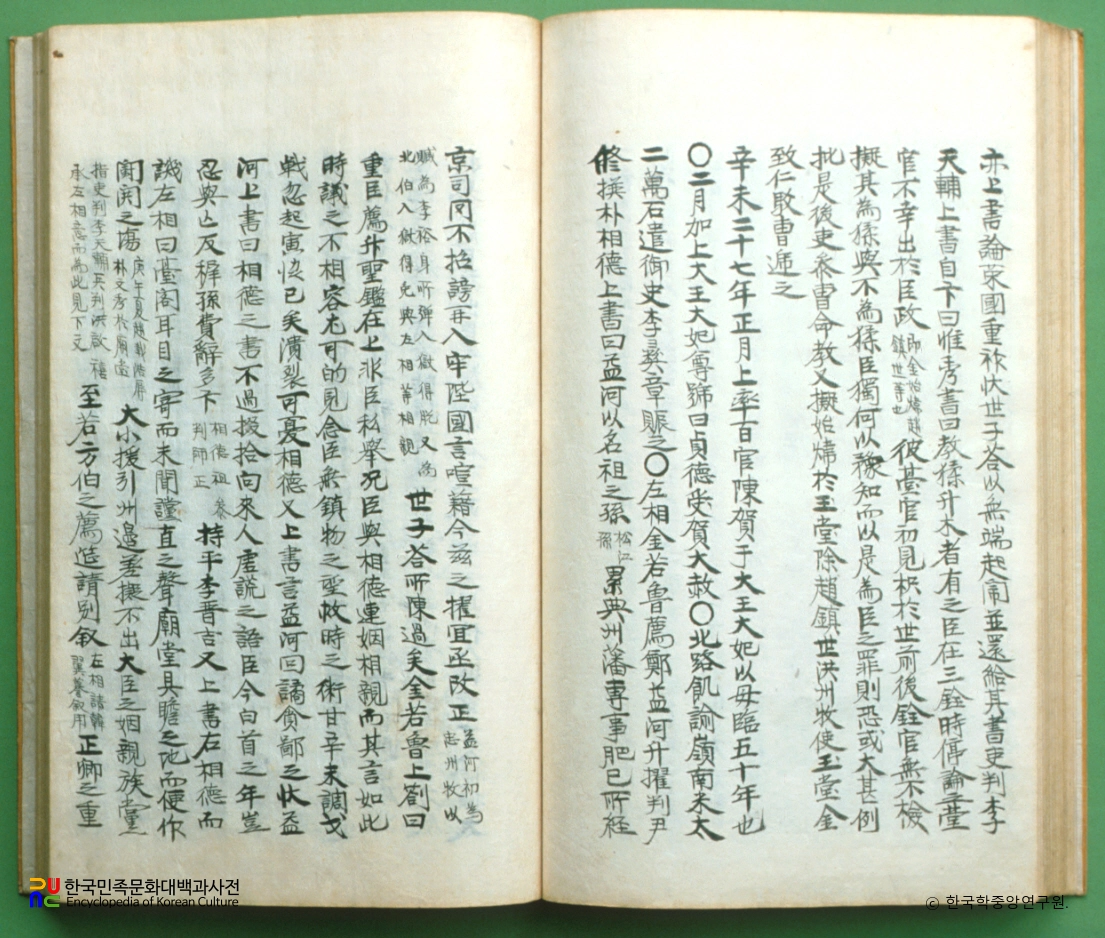 亦上書論蒙國重祚忕世子答以無端起鬧並還給其書吏判李
天輔上書自下曰惟秀書曰教猱升木者有之臣在三銓時停論臺
官不幸出於臣政 即金始煒趙鎮世等也 彼臺官初見枳於世前後銓官無不檢
擬其為猱與不為猱臣獨何以豫知而以是為臣之罪則恐或大甚例
批是後吏參曺命教又擬始煒於玉堂除趙鎮世洪州牧使玉堂金
致仁殿曺遞之
辛未二十七年正月上率百官陳賀于大王大妃以母臨五十年也
〇二月加上大王大妃尊號曰貞德受賀大赦〇北路飢諭嶺南米太
二萬石遣御史李彛章賑之〇左相金若魯薦鄭益河升擢判尹
修撰朴相德上書曰益河以名祖之孫 松江孫 累典州藩專事肥己所經
京司罔不招謗再入牢陛國言喧藉今玆之擢宜亟改正 益河初為忠州牧以
贓為李裕身所彈人做得脫又為北伯入做得免與左相華相親 世子答所陳過矣金若魯上劄曰
重臣薦升聖鑑在上非臣私擧况臣與相德連姻相親而其言如此
時議之不相容尤可的見念臣無鎮物之聖救時之術甘辛未調戈
戟忽起寅恊已矣潰裂可憂相德又上書言益河回譎貪鄙之伏益
河上書曰相德之書不過掇拾向來人虛謊之語臣今白首之年豈
忍與亾友穉孫費辭多下 相德祖參判師正 持平李晋言又上書右相德而
譏左相曰臺閣耳目之寄而未聞讜直之聲廟堂具瞻之地而便作
鬧閧之場 庚午夏趙載浩屏朴文秀於廟堂 大小援引州邊差擬不出大臣之姻親族黨
指吏判李天輔兵判洪啟禧承左相意而為此見下文 至若方伯之薦造請別叙 左相請韓翼謩叙用 正卿之重
한국민족문화대백과사전
Encyclopedia of Korean Culture
ⓒ 한국학중앙연구원.